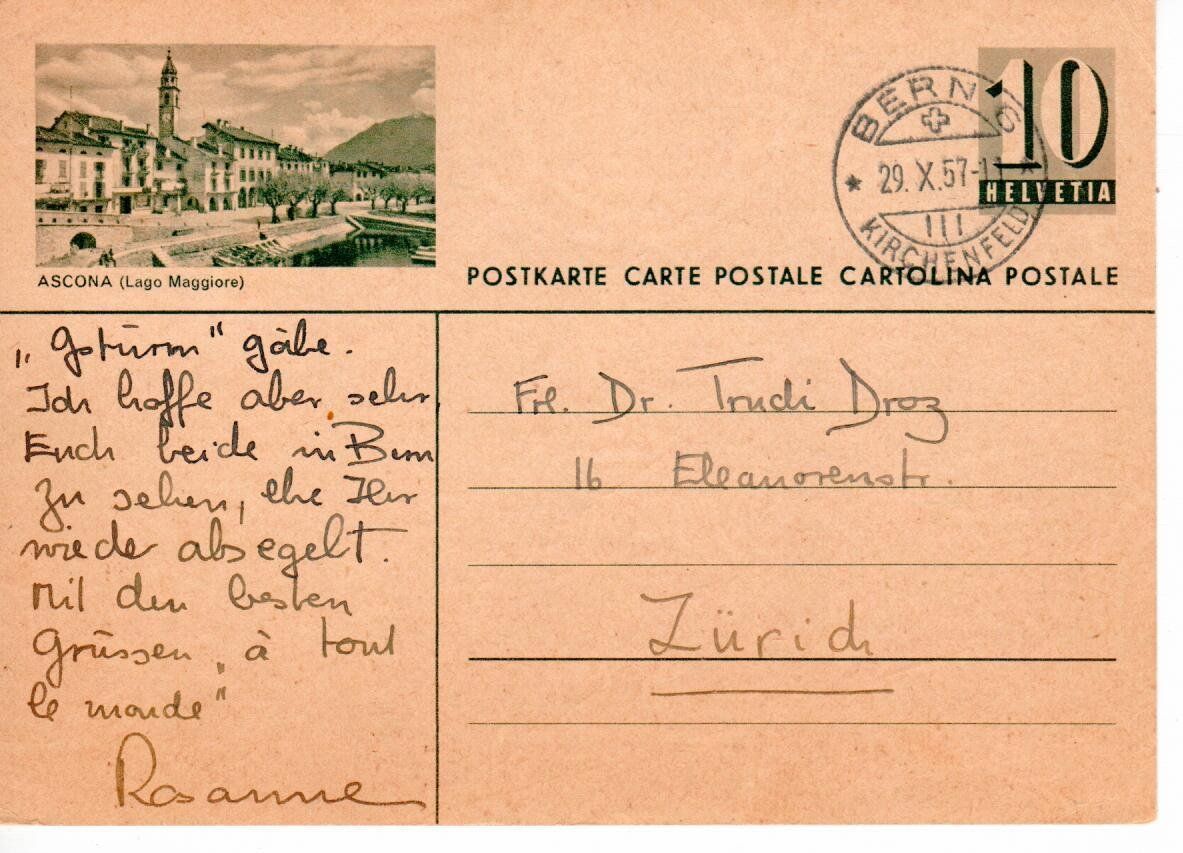 ASCONA (Lago Maggiore)
BERN 6
29. X. 57-11
III
KIRCHENFELD
10
HELVETIA
POSTKARTE CARTE POSTALE CARTOLINA POSTALE
„Gstürm" gäbe.
Ich hoffe aber sehr
Euch beide in Bern
zu sehen, ehe Ihr
wieder absegelt.
Mit den besten
Grüssen „à tout
le monde"
Rosanne
Frl. Dr. Trudi Droz
16 Eleanorenstr.
Zürich